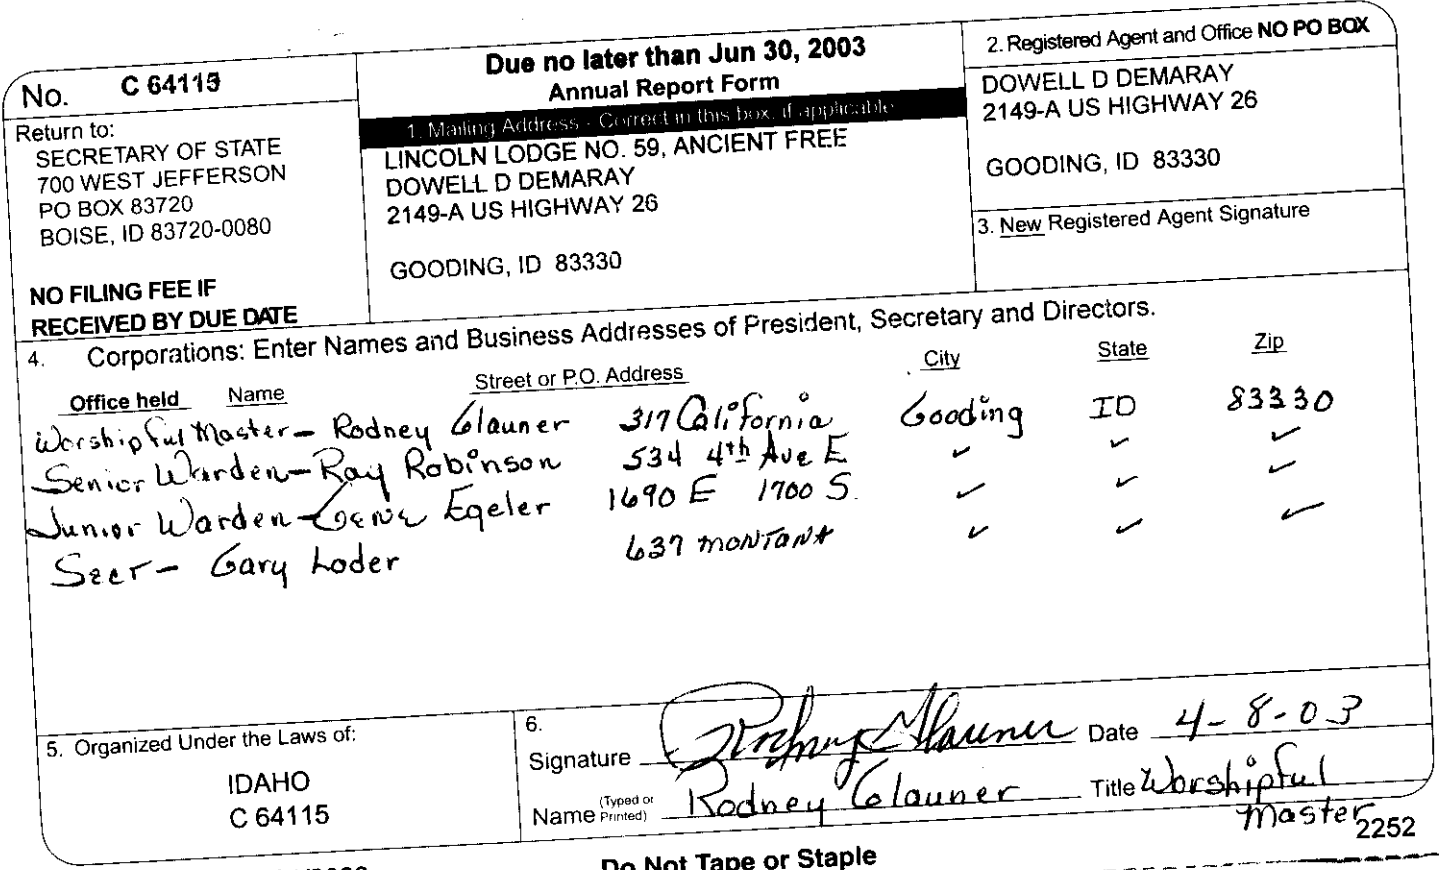 No. C 64115
Due no later than Jun 30, 2003
Annual Report Form
2. Registered Agent and Office NO PO BOX
Return to:
SECRETARY OF STATE
700 WEST JEFFERSON
PO BOX 83720
BOISE, ID 83720-0080
NO FILING FEE IF
RECEIVED BY DUE DATE
1. Mailing Address - Correct in this box, if applicable
LINCOLN LODGE NO. 59, ANCIENT FREE
DOWELL D DEMARAY
2149-A US HIGHWAY 26
GOODING, ID 83330
DOWELL D DEMARAY
2149-A US HIGHWAY 26
GOODING, ID 83330
3. New Registered Agent Signature
4. Corporations: Enter Names and Business Addresses of President, Secretary and Directors.
Office held Name Street or P.O. Address City State Zip
Worshipful Master- Rodney Glauner 317 California Gooding ID 83330
Senior Warden- Ray Robinson 534 4th Ave E ✓ ✓ ✓
Junior Warden- Gene Egeler 1690 E 1700 S. ✓ ✓ ✓
Secr- Gary Loder 637 MONTANA ✓ ✓ ✓
5. Organized Under the Laws of:
IDAHO
C 64115
6.
Signature Rodney Glauner Date 4-8-03
Name (Typed or Printed) Rodney Glauner Title Worshipful
Master
2252
Do Not Tape or Staple